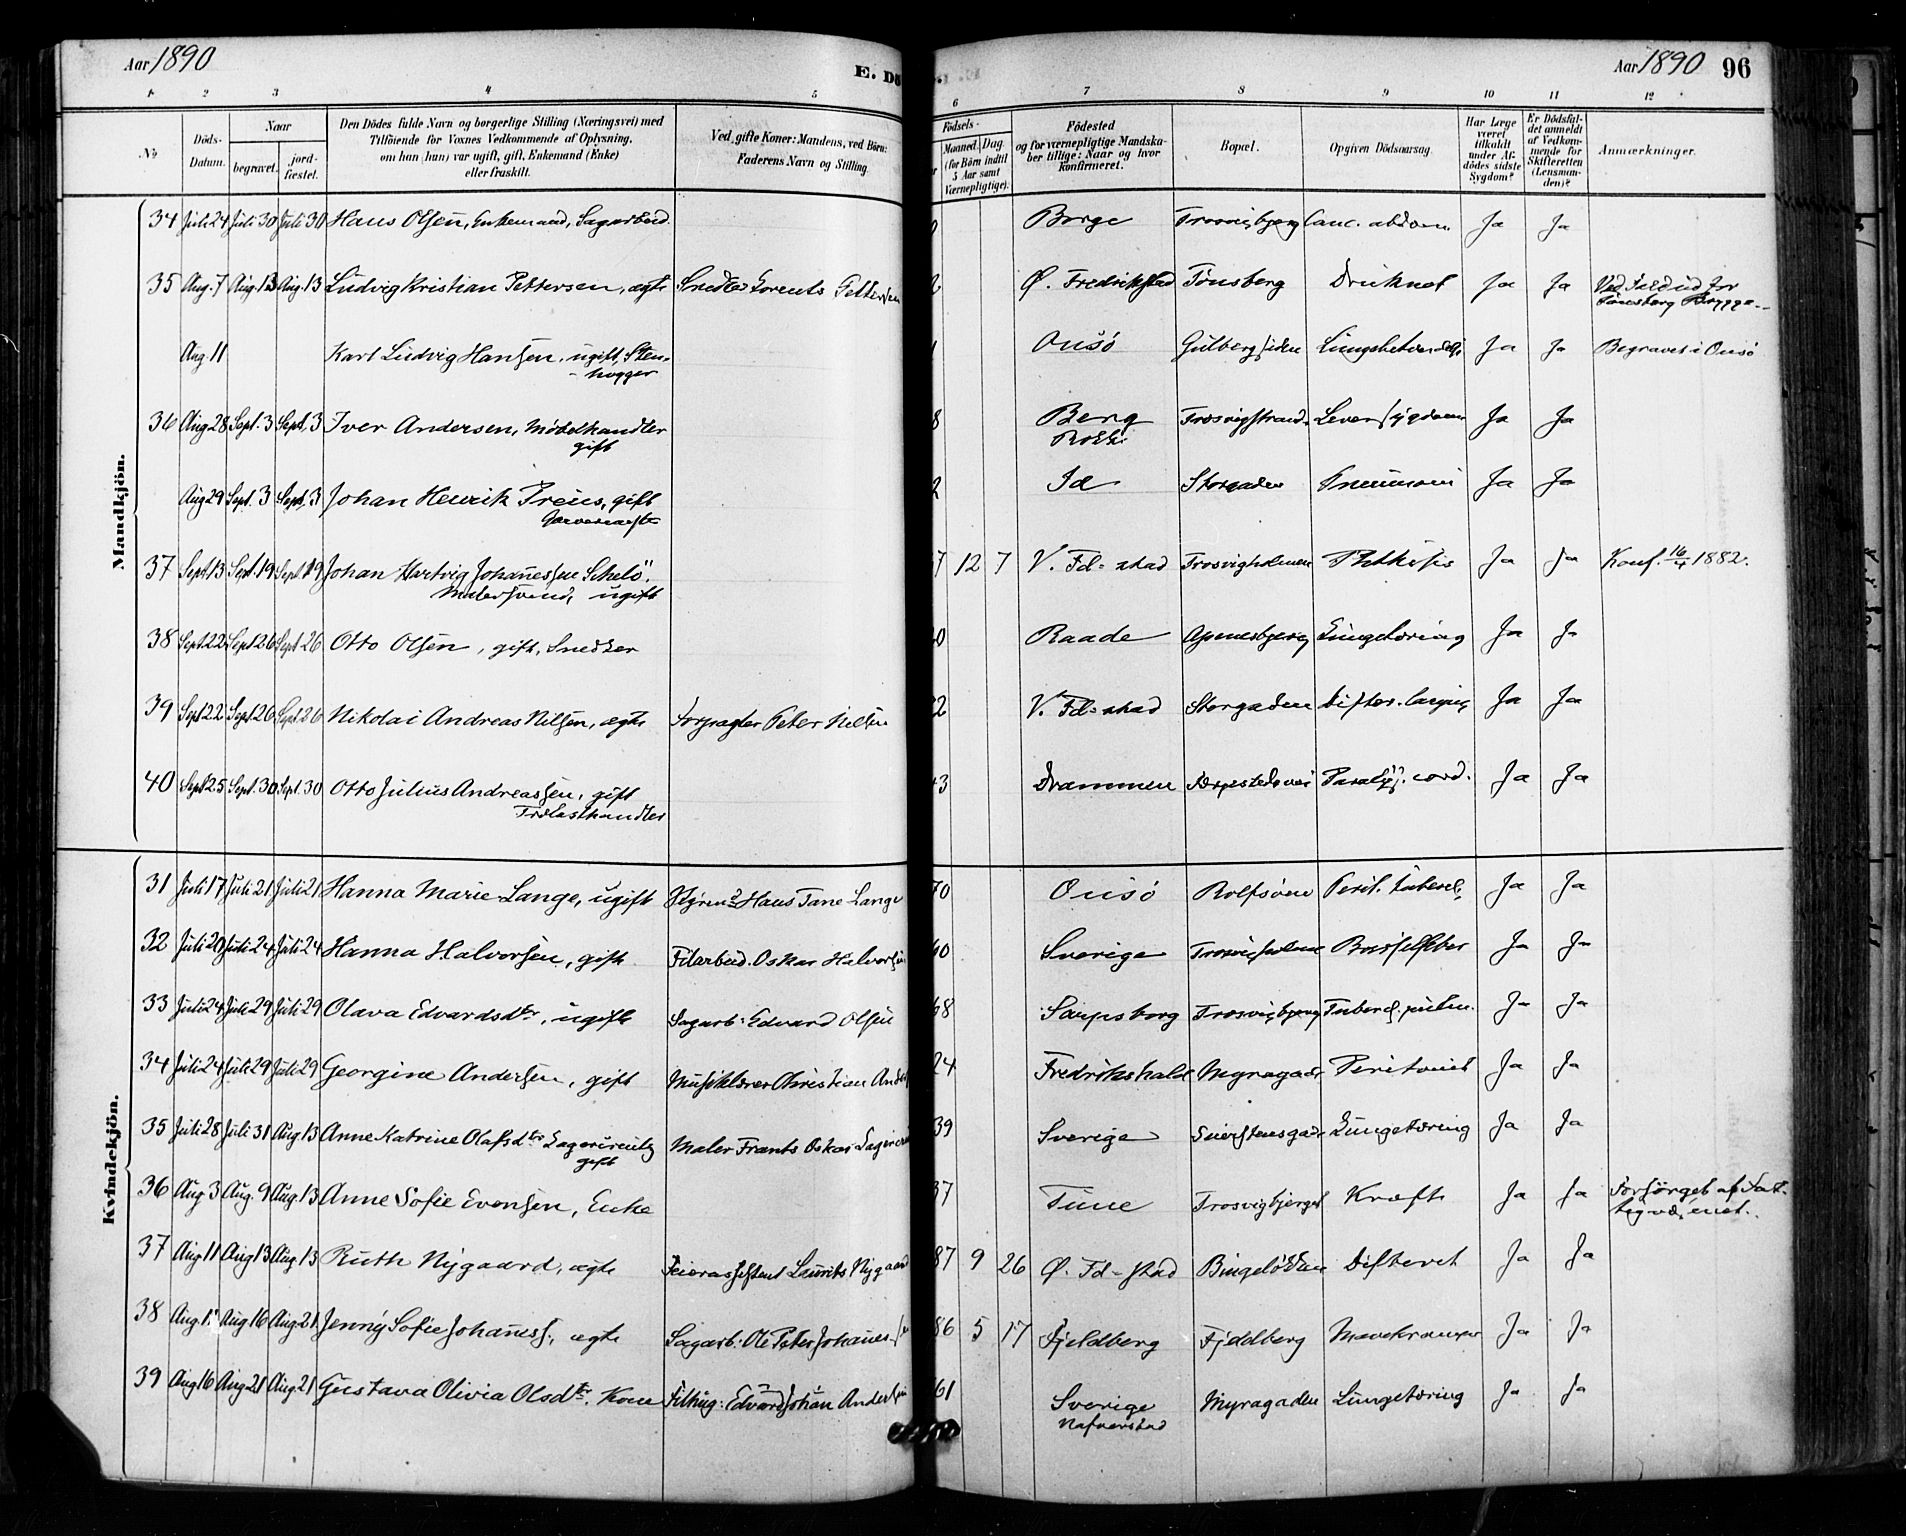 Aar 1890
E. Dö
Aar 1890 96
1 2 3 4 5 6 7 8 9 10 11 12
No
Döds-Datum.
Naar
begravet.
jord-fæstet.
Den Dödes fulde Navn og borgerlige Stilling (Næringsvei) med
Tilföiende for Voxnes Vedkommende af Oplysning,
om han (hun) var ugift, gift, Enkemand (Enke)
eller fraskilt.
Ved gifte Koner: Mandens, ved Börn:
Faderens Navn og Stilling.
Födsels-
Maaned. Dag.
(for Börn indtil
5 Aar samt
Værnepligtige).
Födested
og for værnepligtige Mandska-
ber tillige: Naar og hvor
Konfirmeret.
Bopæl.
Opgiven Dödsaarsag.
Har Læge
været
tilkaldt
under Af-
dödes sidste
Sygdom?
Er Dödsfal-
det anmeldt
af Vedkom-
mende for
Skifteretten
(Lensman-
den)?
Anmærkninger.
Mandkjön.
34 Juli 24 Juli 30 Juli 30 Hans Olsen, Enkemand, Sagarbeid. Borge Trosvigbjerg Canc. abdom. Ja Ja
35 Aug. 7 Aug. 13 Aug. 13 Ludvig Kristian Pettersen, ægte Snedker Lorents Pettersen 2 Ø. Fredrikstad Tønsberg Druknet Ja Ja Ved
Tønsberg Brygge
Aug. 11 Karl Ludvig Hansen, ugift, Sten-
hugger Onsö Gulbergsiden Ja Ja Begravet i Onsö
36 Aug 28 Sept. 3 Sept. 3 Iver Andersen, Møbelhandler
gift 8 Berg
Rokke Trosvigstrand Leversygdom Ja Ja
Aug 29 Sept. 3 Sept. 3 Johan Henrik Preus, gift
2 Id Storgaden Ja Ja
37 Sept. 13 Sept. 19 Sept. 19 Johan Hartvig Johanessen Schelö.
Malersvend, ugift 7 12 7 V. Fd-stad Trosvigholmen Phthisis Ja Ja Konf. 16/4 1882.
38 Sept 22 Sept 26 Sept 26 Otto Olsen, gift, Snedker 0 Raade Apenesbjerg Lungetæring Ja Ja
39 Sept 22 Sept 26 Sept. 26 Nikolai Andreas Nilsen, ægte Peter Nilsen 2 V. Fd-stad Storgaden Difter. laryng Ja Ja
40 Sept 25 Sept. 30 Sept. 30 Otto Julius Andreassen, gift
Trælasthandler 3 Drammen Paralys. cord. Ja Ja
Kvindekjön.
31 Juli 17 Juli 21 Juli 21 Hanna Marie Lange, ugift Hans Lange 70 Onsö Rolfsöen Perit. tubercl. Ja Ja
32 Juli 20 Juli 24 Juli 24 Hanna Halvorsen, gift Filarbeid. Oskar Halvorsen 60 Sverige Trosvigholmen Barselfeber Ja Ja
33 Juli 24 Juli 29 Juli 29 Olava Edvardsdtr, ugift Sagarb: Edvard Olsen 68 Sarpsborg Trosvigbjerg Tubercl. pulm. Ja Ja
34 Juli 24 Juli 29 Juli 29 Georgine Andersen, gift Musiklærer Christian Ander 24 Fredrikshald Myragaden Peritonit Ja Ja
35 Juli 28 Juli 31 Aug. 13 Anne Katrine Olafsdtr
gift Maler Frants Oskar 39 Sverige Lungetæring Ja Ja
36 Aug. 3 Aug. 9 Aug. 13 Anne Sofie Evensen, Enke 37 Tune Trosvigbjerget Kræft Ja Ja Forsörget af Fat-
tigvæsenet.
37 Aug 11 Aug 13 Aug. 13 Ruth Nygaard, ægte Feierassistent Laurits Nygaard 87 9 26 Ø. Fd-stad Bingelökken Difterit Ja Ja
38 Aug. 1 Aug 16 Aug. 21 Jenny Sofie Johaness., ægte Sagarb: Ole Peter Johanes-sen 86 5 17 Fjeldberg Fjeldberg Mavekramper Ja Ja
39 Aug 16 Aug 21 Aug. 21 Gustava Olivia Olsdtr. Kone Filhug: Edvard Johan Andersen 61 Sverige
Nafverstad Myragaden Lungetæring Ja Ja